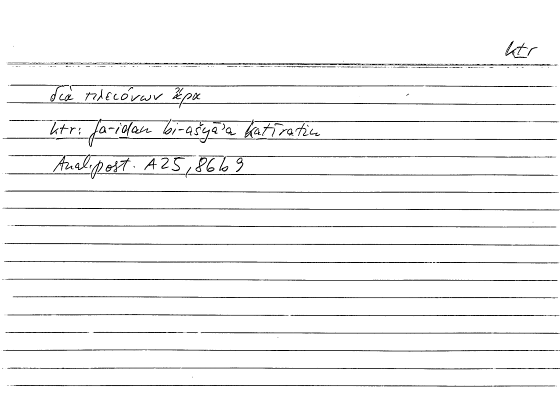 ktr
διὰ πλειόνων ἄρα
ktr: fa-iḏan bi-ašyāʾa kaṯīratin
Anal. post. A 25, 86b9